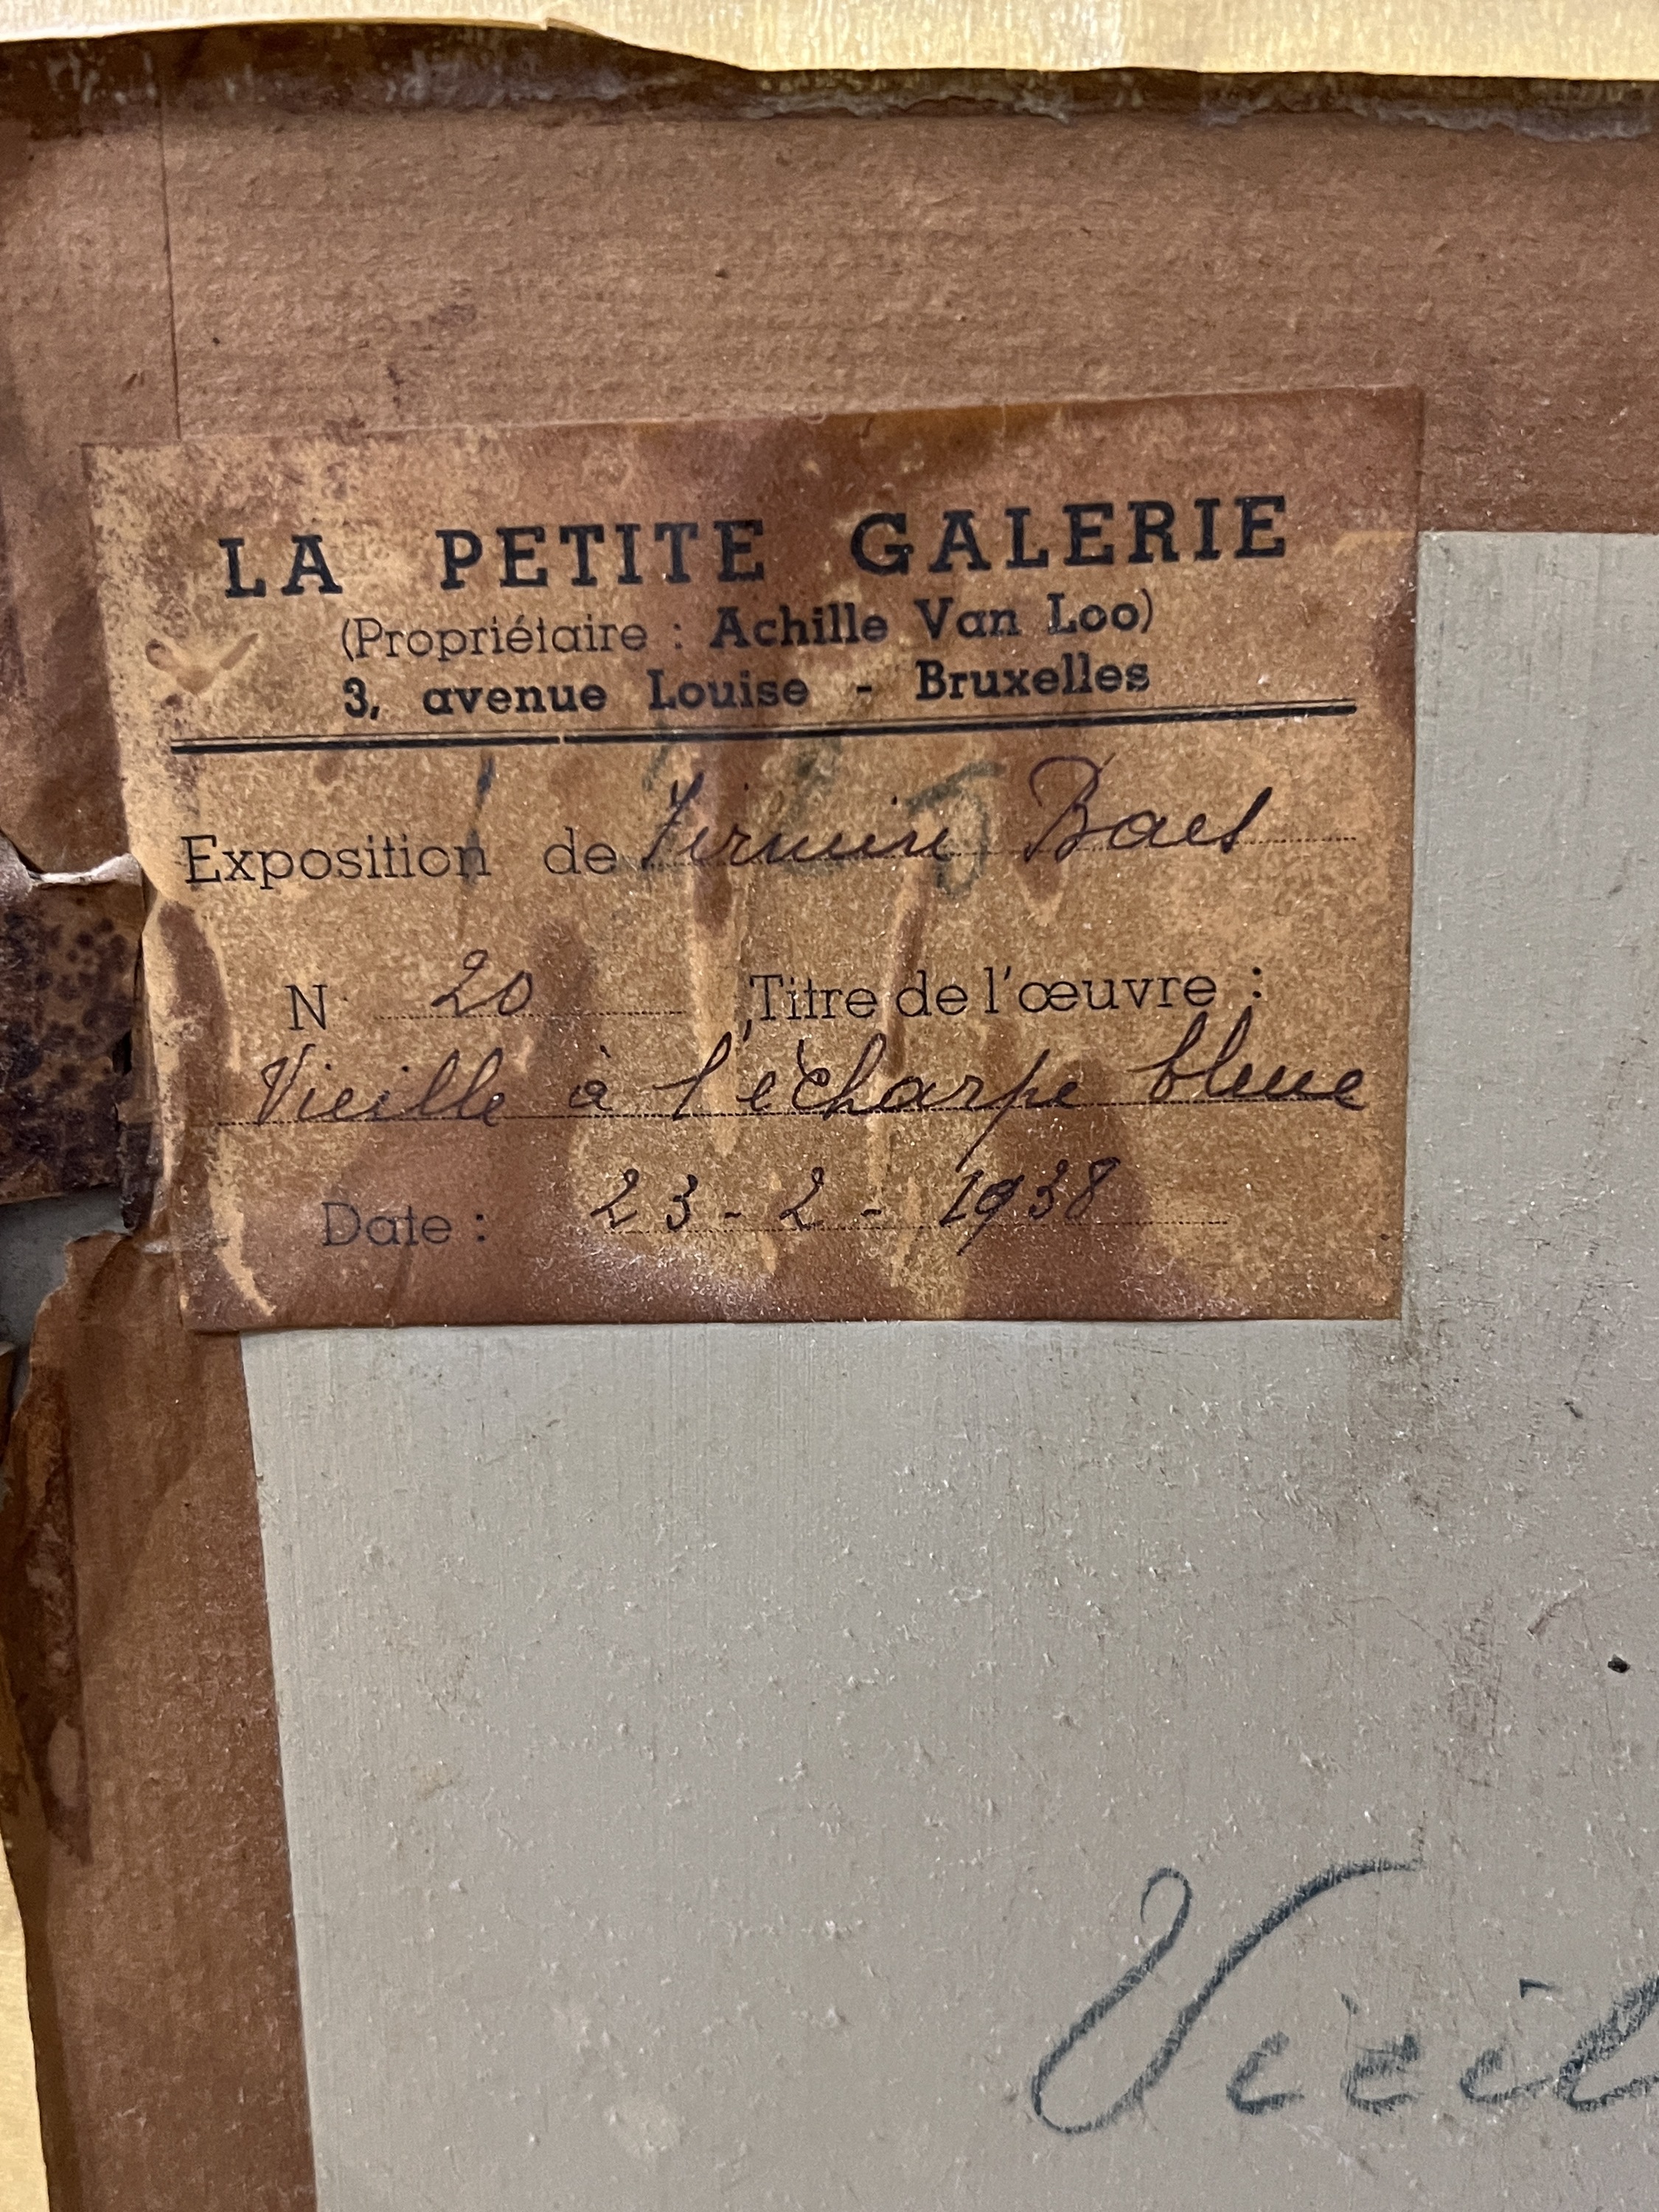 LA PETITE GALERIE
(Propriétaire : Achille Van Loo)
3, avenue Louise - Bruxelles
Exposition de Firmin Baes
N 20 Titre de l'œuvre :
Vieille à l'écharpe bleue
Date : 23-2-1938
Vieil